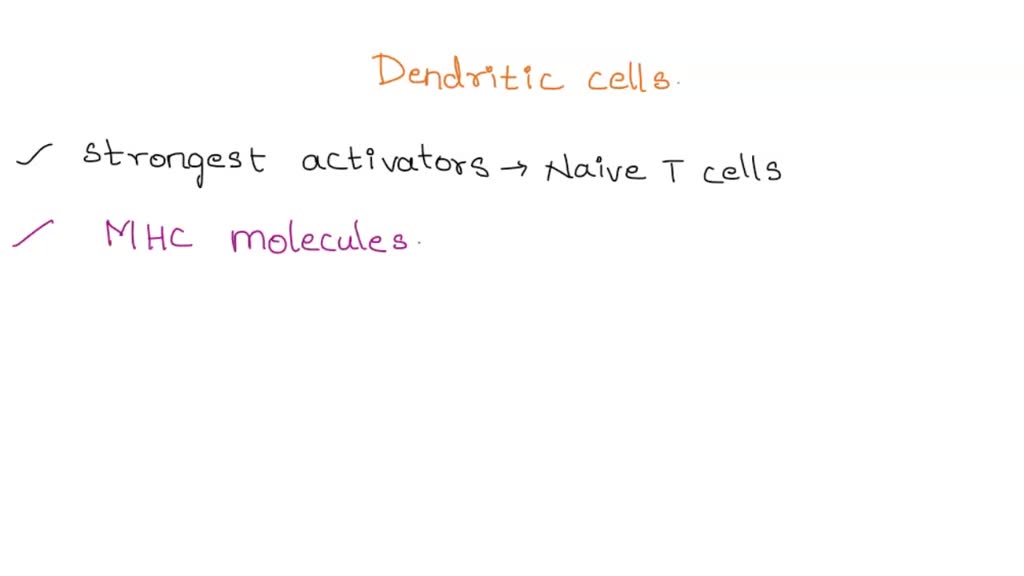 Dendritic cells.
✓ Strongest activators → Naive T cells
✓ MHC molecules.